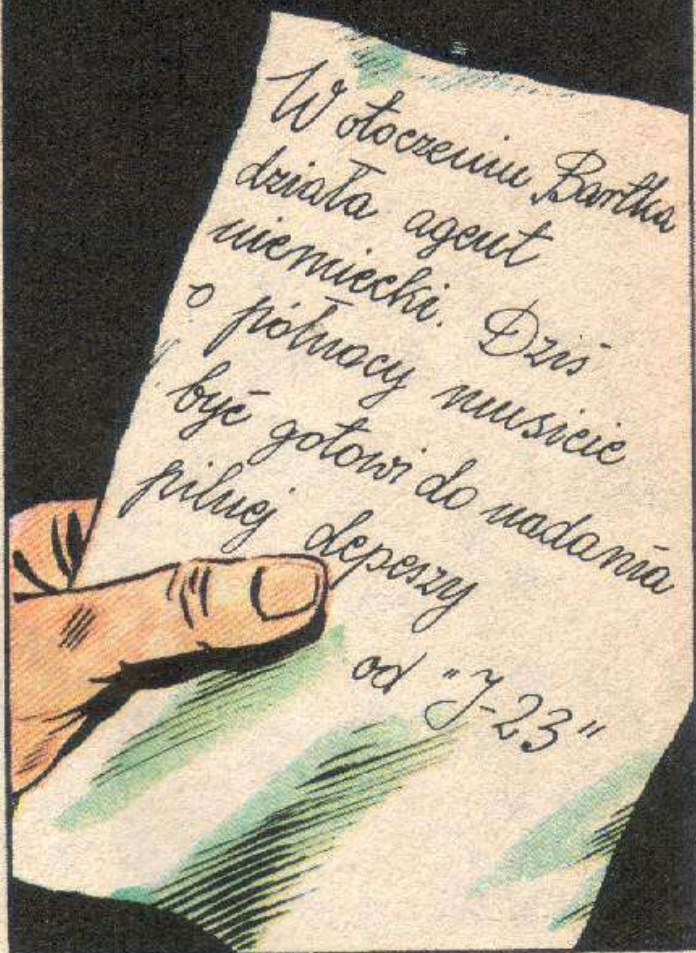 W otoczeniu Bartka
działa agent
niemiecki. Dziś
o północy musicie
być gotowi do nadania
pilnej depeszy
od "J-23"